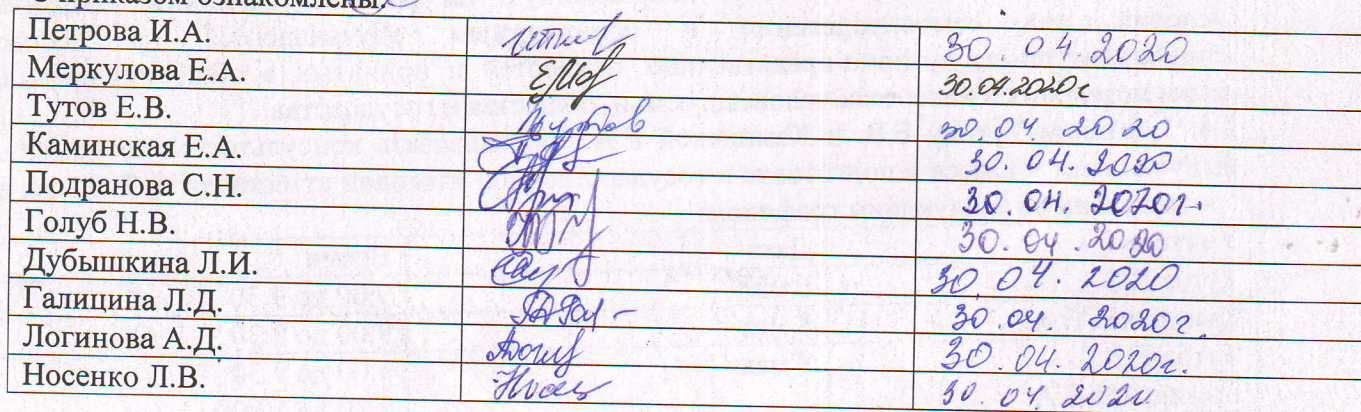 С приказом ознакомлены:
Петрова И.А. 30.04.2020
Меркулова Е.А. 30.04.2020 г
Тутов Е.В. 30.04.2020
Каминская Е.А. 30.04.2020
Подранова С.Н. 30.04.2020г.
Голуб Н.В. 30.04.2020
Дубышкина Л.И. 30.04.2020
Галицина Л.Д. 30.04. 2020г
Логинова А.Д. 30.04.2020г.
Носенко Л.В. 30.04.2020